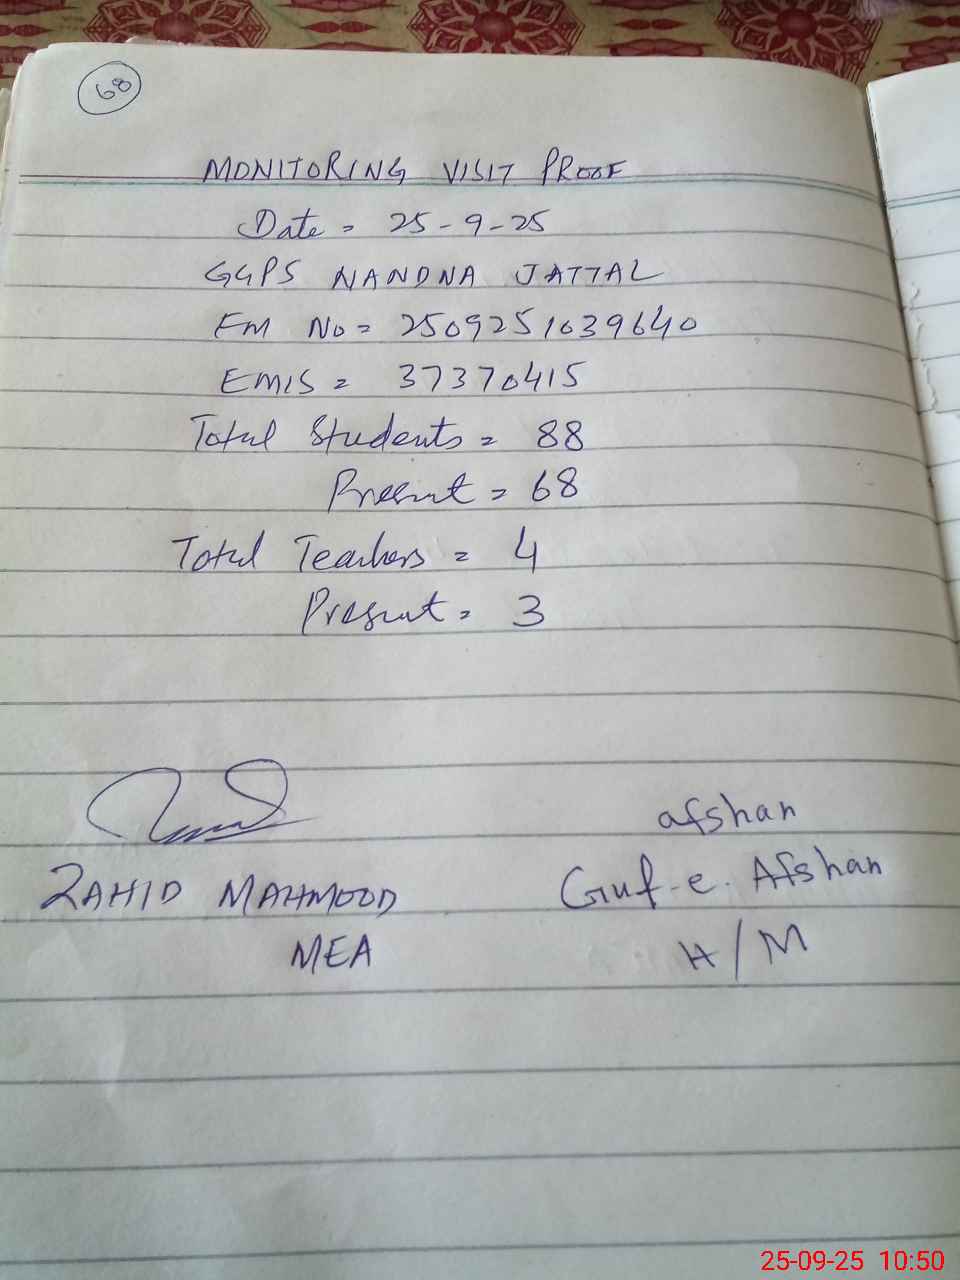 68
MONITORING VISIT PROOF
Date = 25-9-25
GGPS NANDNA JATTAL
EM No = 2509251039640
EMIS = 37370415
Total Students = 88
Present = 68
Total Teachers = 4
Present = 3
afshan
ZAHID MAHMOOD
Guf-e. Afshan
MEA
H/M
25-09-25 10:50